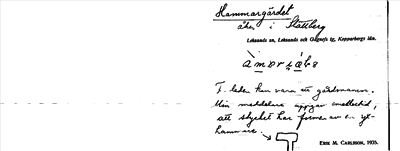 Hammargärdet
åker i Stallberg
Leksands sn, Leksands och Gagnefs tg, Kopparbergs län.
F. leden kan vara ett gårdsnamn.
Min meddelare uppgav emellertid,
att stycket har formen av en yx-
hammare.
ERIK M. CARLSSON, 1935.